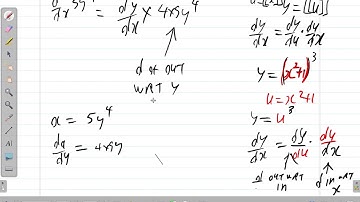 d/dx 5y⁴ = dy/dx × 4×5y⁴
d of OUT
WRT Y
x = 5y⁴
dx/dy = 4×5y
dy/dx = dy/dy · dy/dx
y = (x²+1)³
u = x²+1
y = u³
dy/dx = dy/du · dy/dx
d OUT WRT
IN
d in WRT
x